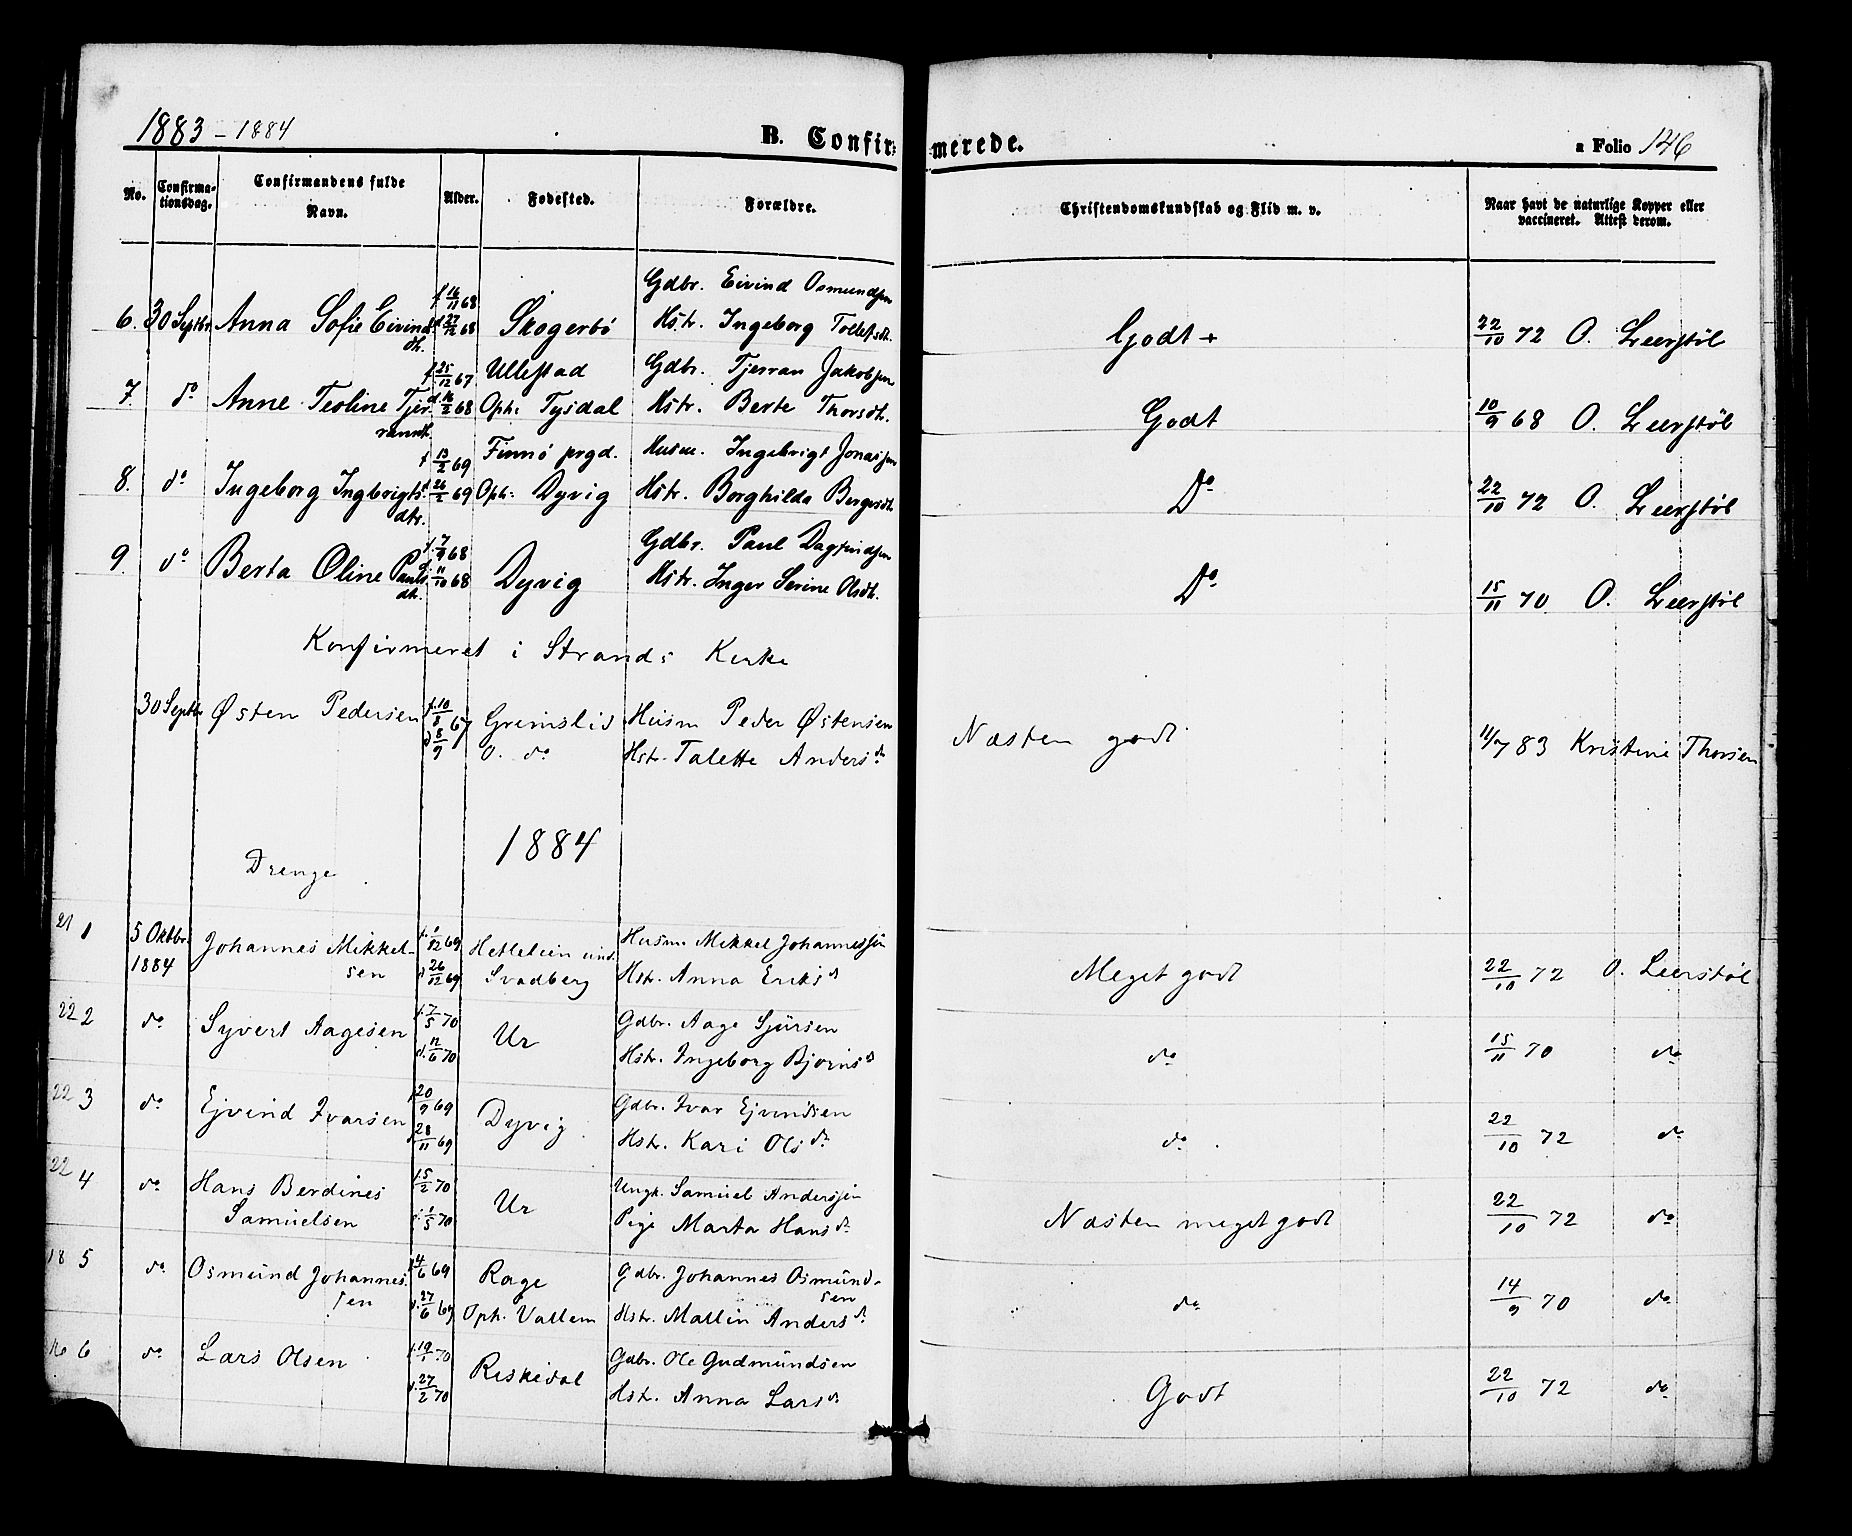 1883 - 1884
B. Confirmerede.
a Folio 146
No.
Confirma-
tionsdag.
Confirmandens fulde
Navn.
Alder.
Fødested.
Forældre.
Christendomskundskab og Flid m. v.
Naar havt de naturlige Kopper eller
vaccineret. Attest derom.
6. 30 Septbr. Anna Sofie Eivinds
dtr.
f 16/11 68
d 27/12 68
Skogerbø
Gdbr. Eivind Osmundsen
Hstr. Ingeborg Tollefsdt.
Godt +
22/10 72 O. Leerstøl
7. do Anne Teoline Tjer
rannsdt.
f 25/12 67
d 16/2 68
Ullestad
Oph: Tysdal
Gdbr. Tjerran Jakobsen
Hstr. Berte Thorsdt.
Godt
10/9 68 O. Leerstøl
8. do Ingeborg Ingbrigts
dtr.
f 13/2 69
26/2 69
Finnø prgd.
Oph: Dyvig
Husm. Ingebrigt Jonassen
Hstr. Borghilda Bergesdt.
Do
22/10 72 O. Leerstøl
9. do Berta Oline Pauls
dt.
f. 7/9 68
d. 11/10 68
Dyvig
Gdbr. Paul Dagfindsen
Hstr. Inger Serine Olsdt.
Do
15/11 70 O. Leerstøl
Konfirmeret i Strands Kirke
30 Septbr Østen Pedersen
f. 10/8 67
d 8/9
Grimslid
O. do
Husm Peder Østensen
Hstr. Talette Andersd
Næsten godt
11/7 83 Kristine Thorsen
1884
Drenge
21 1 5 Oktbr.
1884
Johannes Mikkel-
sen
f. 1/12 69
d 26/12 69
Hetleleien und.
Svadberg
Husm. Mikkel Johannessen
Hstr. Anna Eriksd
Meget godt
22/10 72 O. Leerstøl
22 2 do Syvert Aagesen
f. 7/5 70
d. 12/6 70
Ur
Gdbr. Aage Sjursen
Hstr. Ingeborg Bjørnsd
do
15/11 70 do
22 3 do Ejvind Ivarsen
20/9 69
28/11 69
Dyvig
Gdbr. Ivar Ejvindsen
Hstr. Kari Olsd
do
22/10 72 do
22 4 do Hans Berdines
Samuelsen
15/2 70
1/5 70
Ur
Ungk. Samuel Anderssen
Pige Marta Hansd
Næsten meget godt
22/10 72 do
18 5 do Osmund Johannes
sen
4/6 69
d. 27/6 69
Rage
Oph. Vallem
Gdbr. Johannes Osmund-
sen
Hstr. Mallin Andersd
do
14/9 70 do
16 6 do Lars Olsen
f. 19/1 70
d. 27/2 70
Reskedal
Gdbr. Ole Gudmundsen
Hstr. Anna Larsd
Godt
22/10 72 do